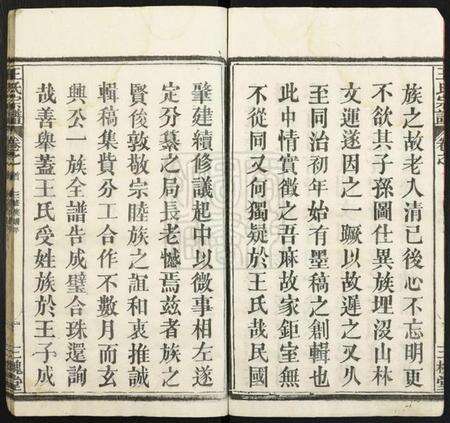 族之故老人清已後心不忘明更
不欲其子孫圖仕異族埋沒山林
文運遂因之一蹶以故遲之又久
至同治初年始有墨稿之創輯也
此中情實徵之吾麻故家鉅室無
不從同又何獨疑於王氏哉民國
肇建續修議起中以微事相左遂
定分纂之局長老憾焉茲者族之
賢俊敦敬宗睦族之誼和衷推誠
輯稿集貲分工合作不數月而玄
興公一族全譜告成璧合珠還詢
哉善舉蓋王氏受姓族於王子成
王氏宗譜
卷之首
三槐堂